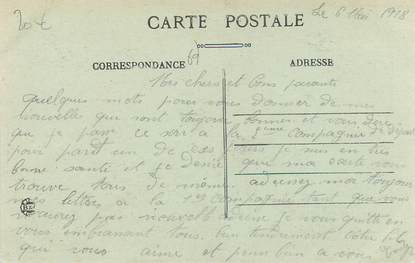 20 €
Le 6 Mai 1918
CARTE POSTALE
CORRESPONDANCE
69
ADRESSE
Mes chers et bons parents
quelques mots pour vous donner de mes
nouvelle qui sont toujour bonnes et vous dire
que je passe ce soir a la 9eme Compagnie de
pour parti un de ces jours je suis en très
bonne santé et je desire que ma carte vous
trouve tous de même adressez moi toujours
mes lettres a la 1ere Compagnie tant que vous
n'aurez pas nouvelle je vous quitte en
vous embrassant tous bien tendrement votre fils
qui vous aime et pense bien a vous